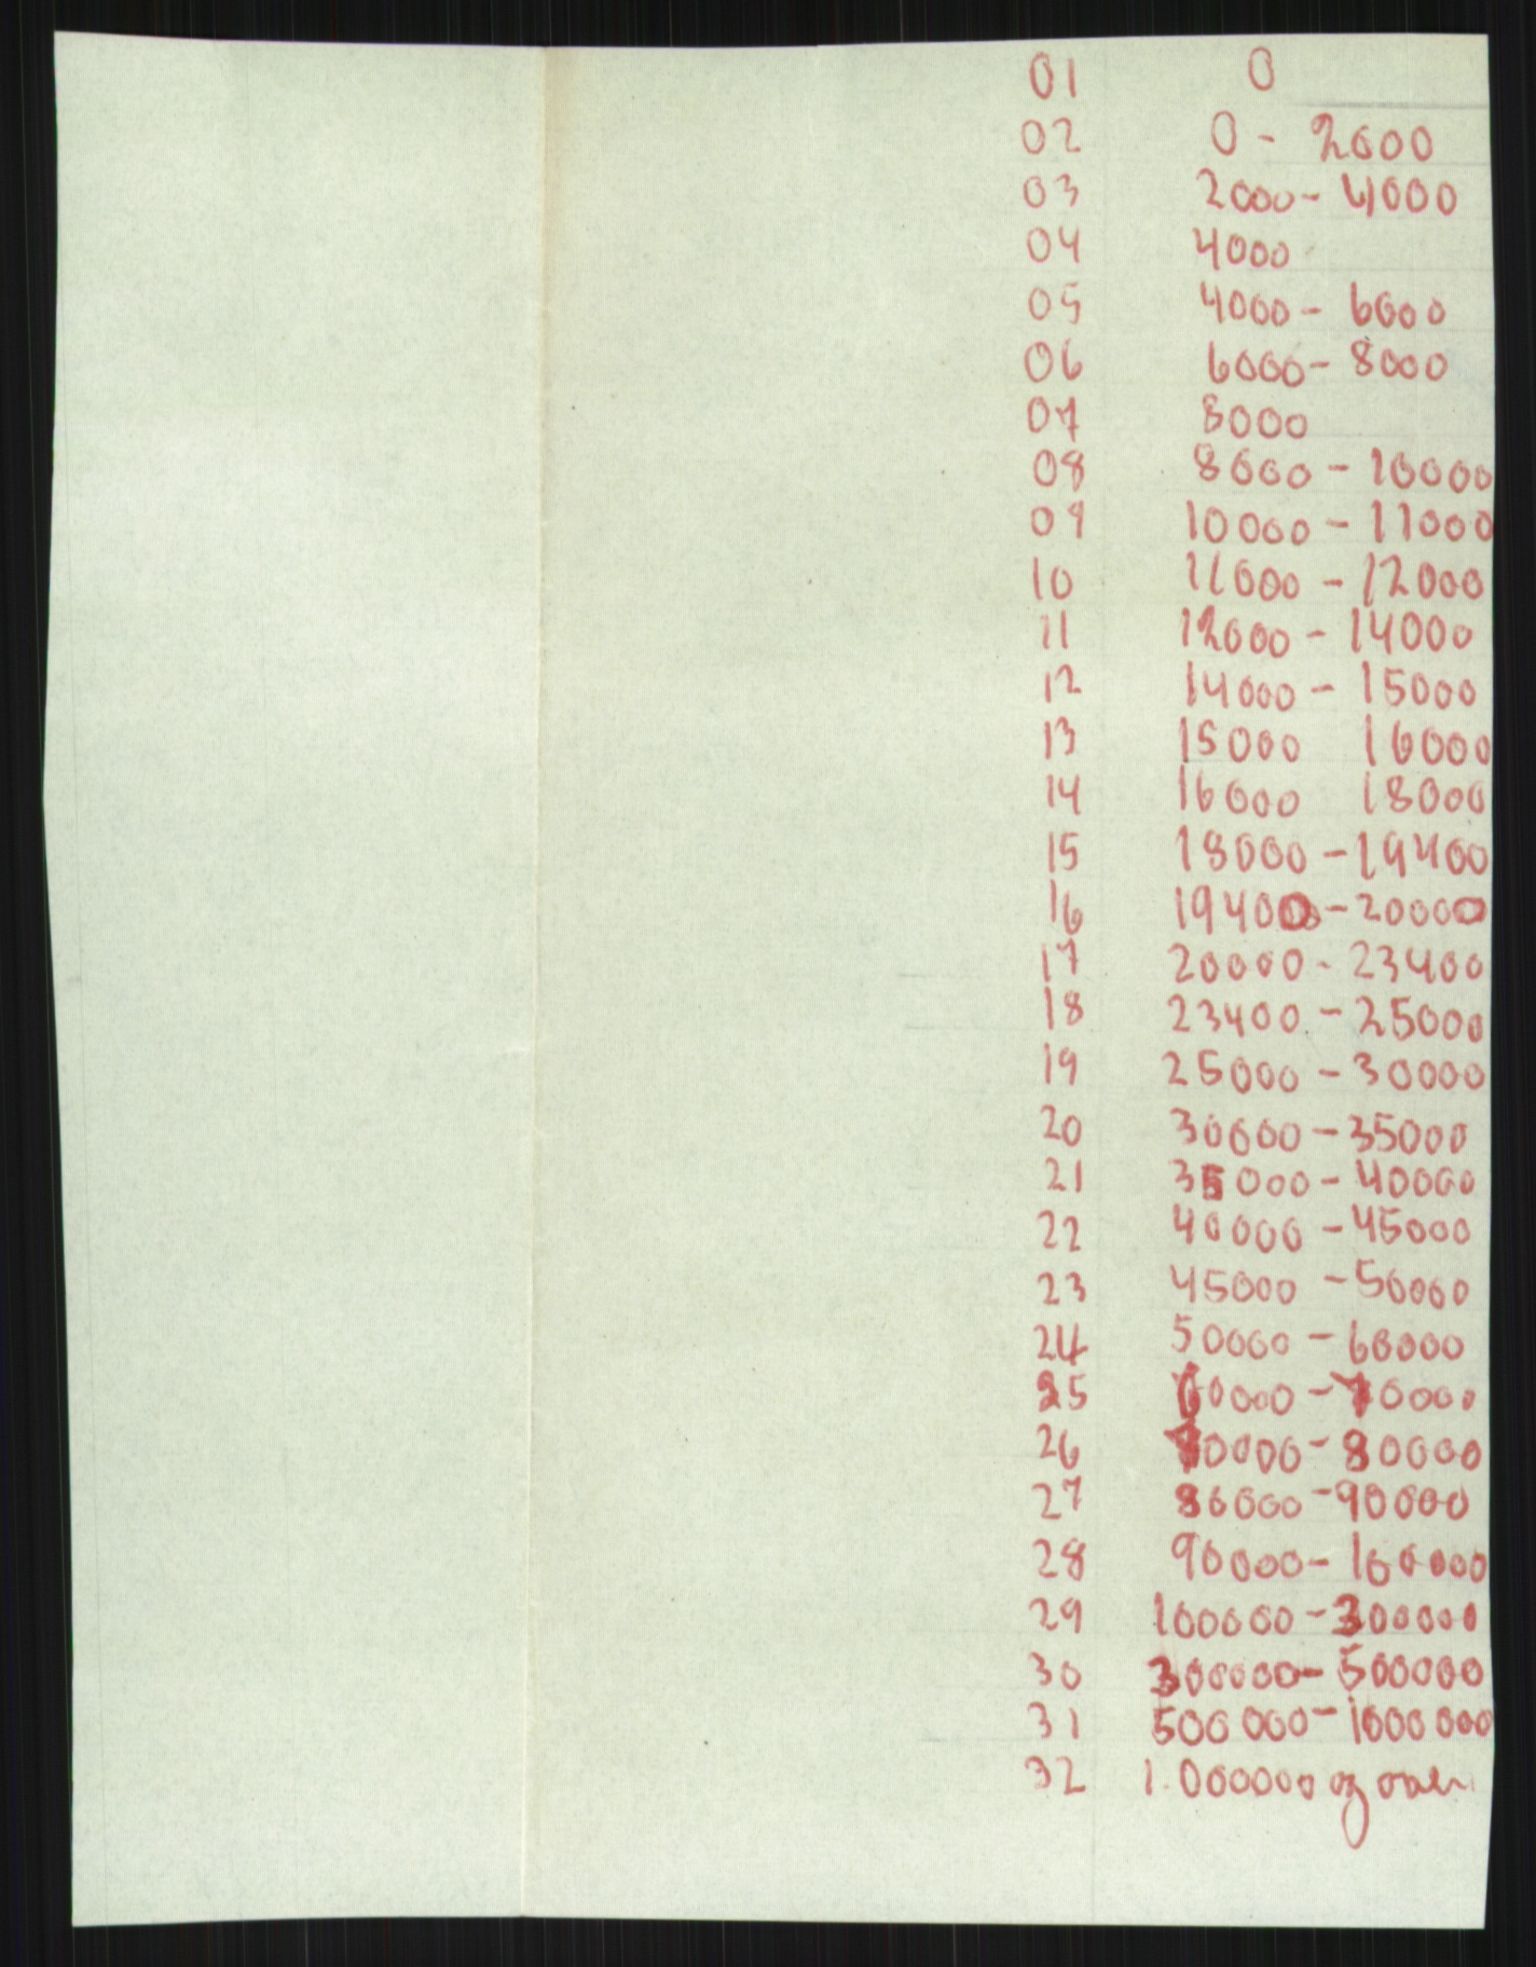 01 0
02 0 - 2000
03 2000 - 4000
04 4000
05 4000 - 6000
06 6000 - 8000
07 8000
08 8000 - 10000
09 10000 - 11000
10 11000 - 12000
11 12000 - 14000
12 14000 - 15000
13 15000 16000
14 16000 18000
15 18000 - 19400
16 19400 - 20000
17 20000 - 23400
18 23400 - 25000
19 25000 - 30000
20 30000 - 35000
21 35000 - 40000
22 40000 - 45000
23 45000 - 50000
24 50000 - 60000
25 60000 - 70000
26 70000 - 80000
27 80000 - 90000
28 90000 - 100000
29 100000 - 300000
30 300000 - 500000
31 500 000 - 1000 000
32 1.000000 og over